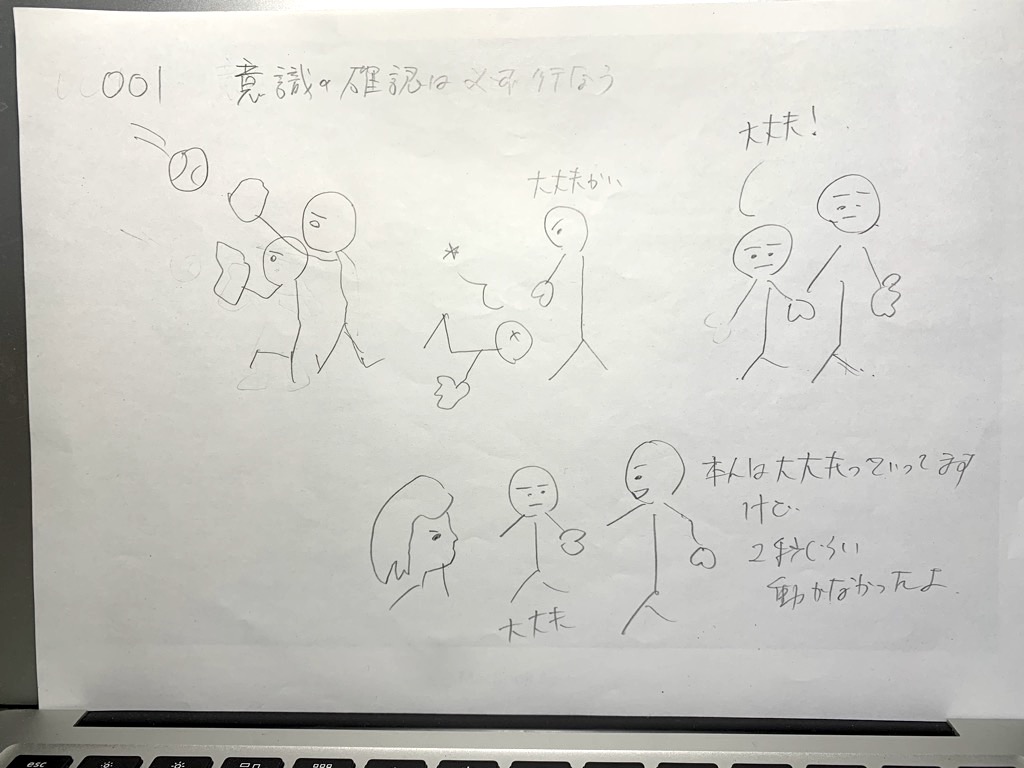 001 意識の確認は必ず行なう
大丈夫かい
大丈夫!
本人は大丈夫っていってます
けど
2秒くらい
動かなかったよ
大丈夫
esc